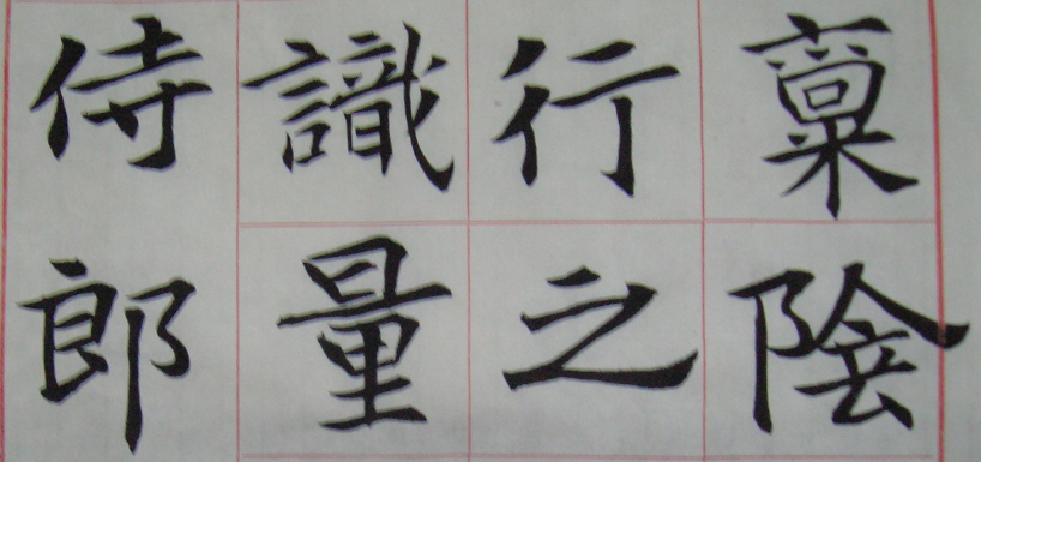 稟陰
行之
識量
侍郎